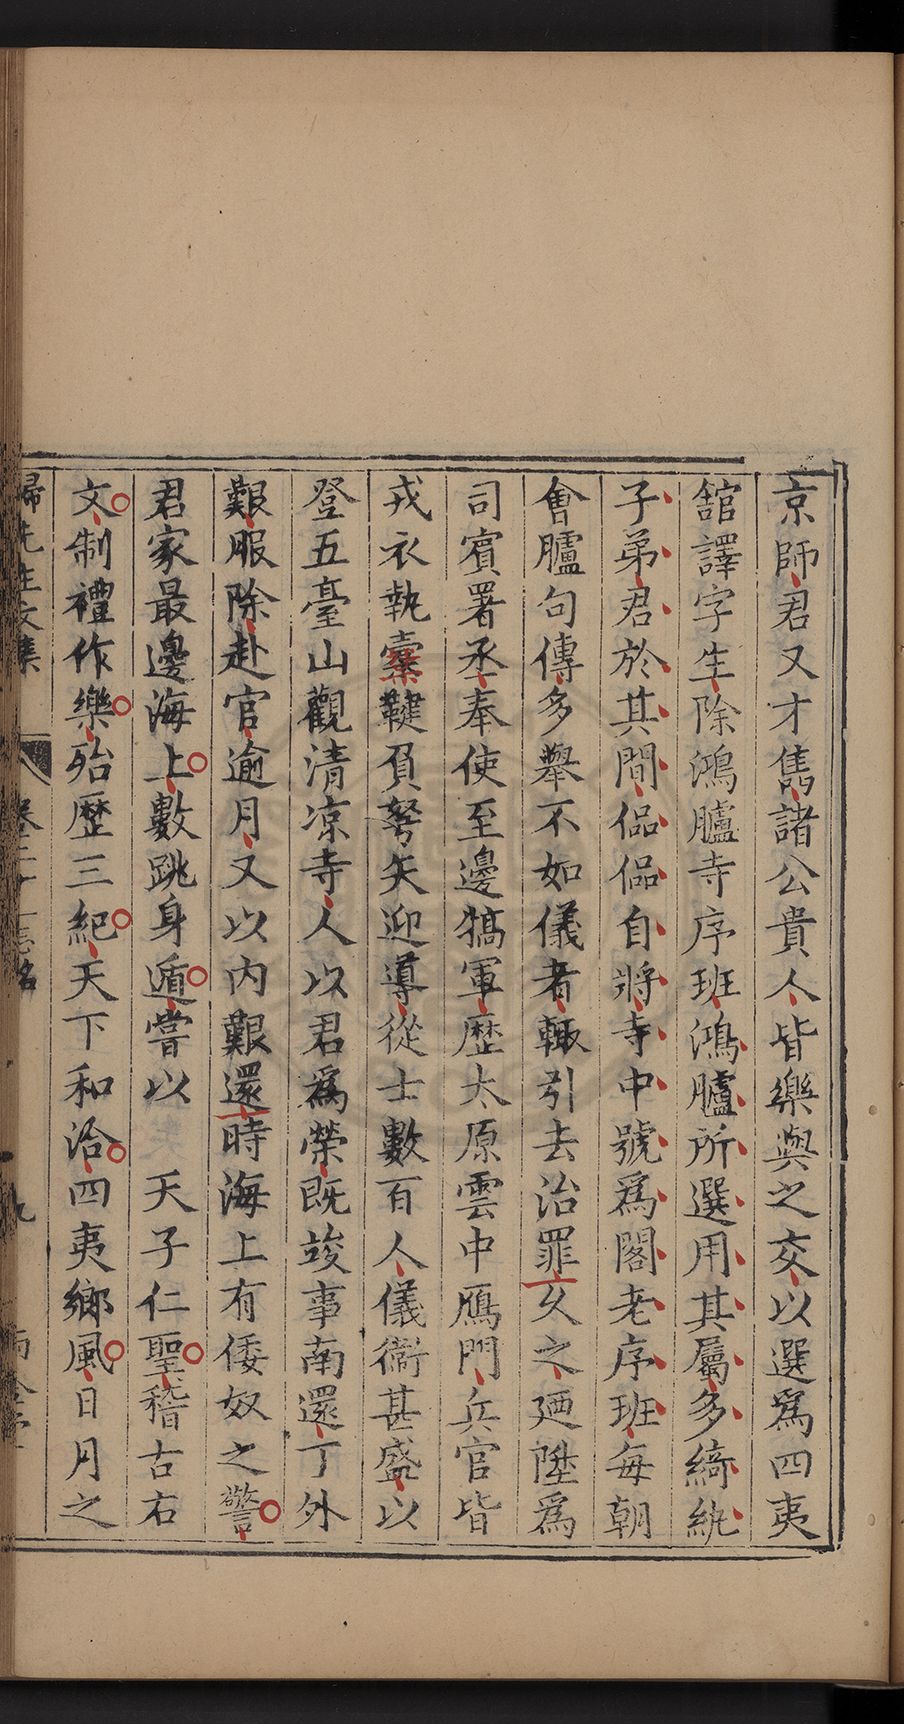 京師君又才雋諸公貴人皆樂與之交以選爲四夷
舘譯字生除鴻臚寺序班鴻臚所選用其屬多綺紈
子弟君於其間偘偘自將寺中號爲閣老序班每朝
會臚句傳多舉不如儀者輒引去治罪久之廼陞爲
司賓署丞奉使至邊犒軍歷太原雲中鴈門兵官皆
戎衣執櫜鞬負弩矢迎導從士數百人儀衛甚盛以
登五臺山觀清凉寺人以君爲榮既竣事南還丁外
艱服除赴官逾月又以内艱還時海上有倭奴之警
君家最邊海上數跳身遁嘗以 天子仁聖稽古右
文制禮作樂殆歷三紀天下和洽四夷鄉風日月之
歸先生文集 卷二十 誌銘 九